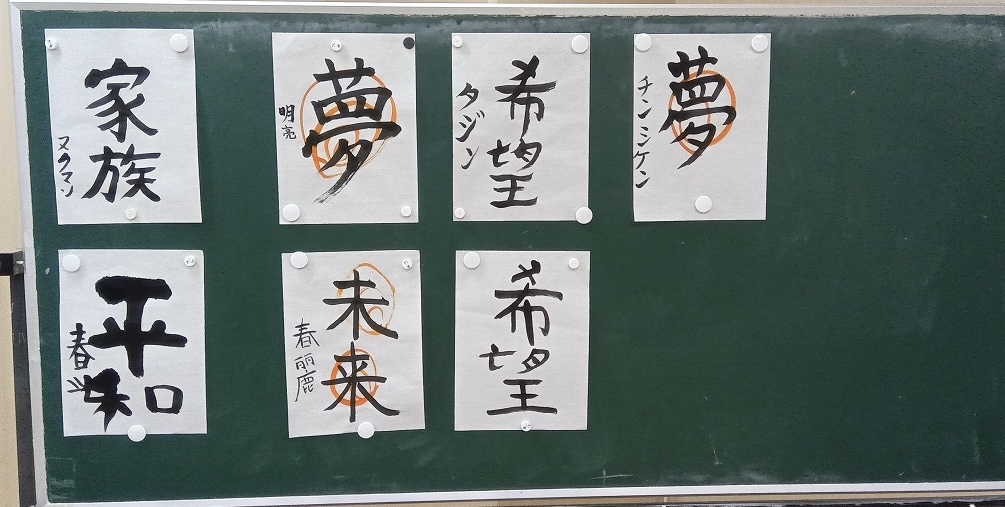 家族
ヌクマン
夢
明亮
希望
タジン
夢
チンミケン
平和
春
未来
春麗鹿
希望